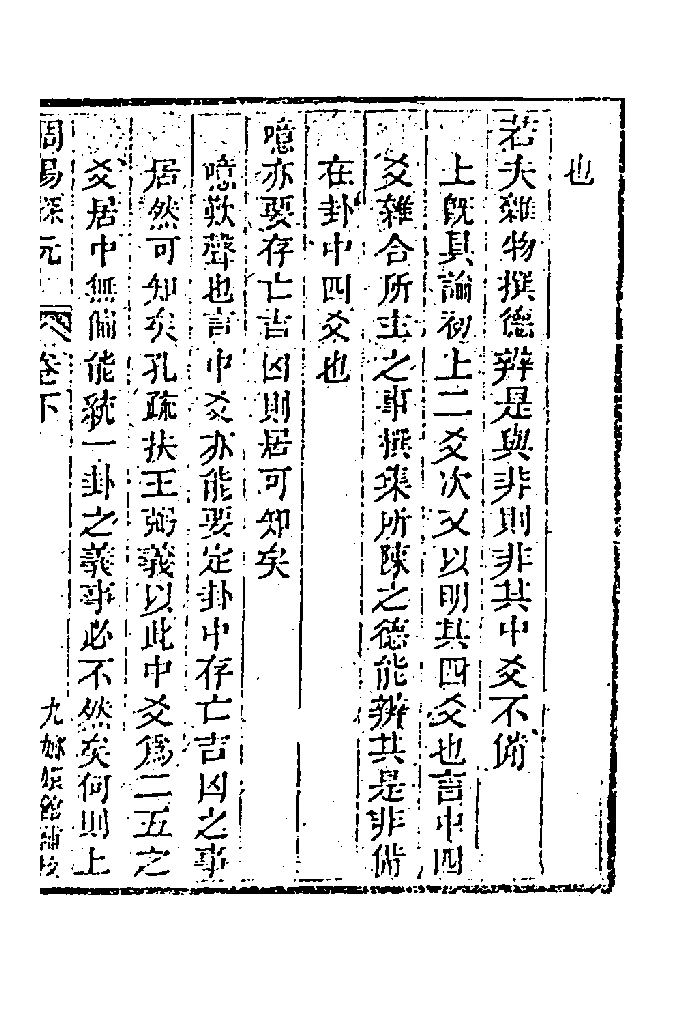 也
若夫雜物撰德辨是與非則非其中爻不備
上旣具論初上二爻次又以明其四爻也言中四
爻雜合所主之事撰集所陳之德能辨其是非備
在卦中四爻也
噫亦要存亡吉凶則居可知矣
噫歎聲也言中爻亦能要定卦中存亡吉凶之事
居然可知矣孔疏扶王弼義以此中爻爲二五之
爻居中無偏能統一卦之義事必不然矣何則上
周易探元 卷下